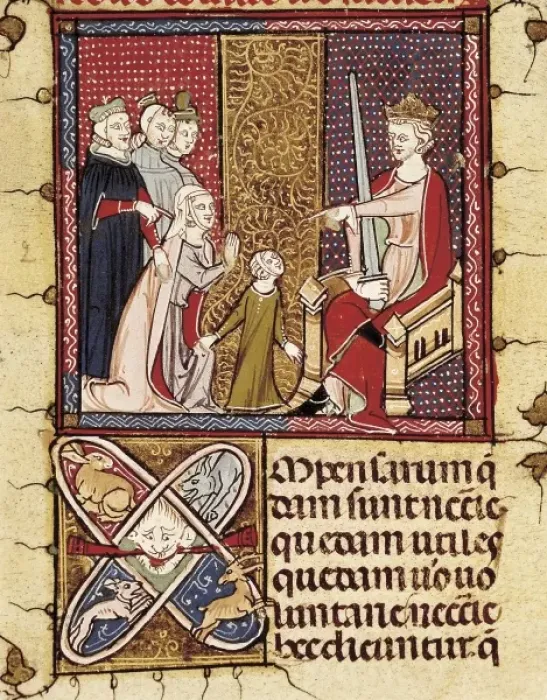 Mpensarum q̄
dam sunt neccīe
quedam utiles
quedam u̓o uo
luntarie neccīe
hec dicuntur q̄